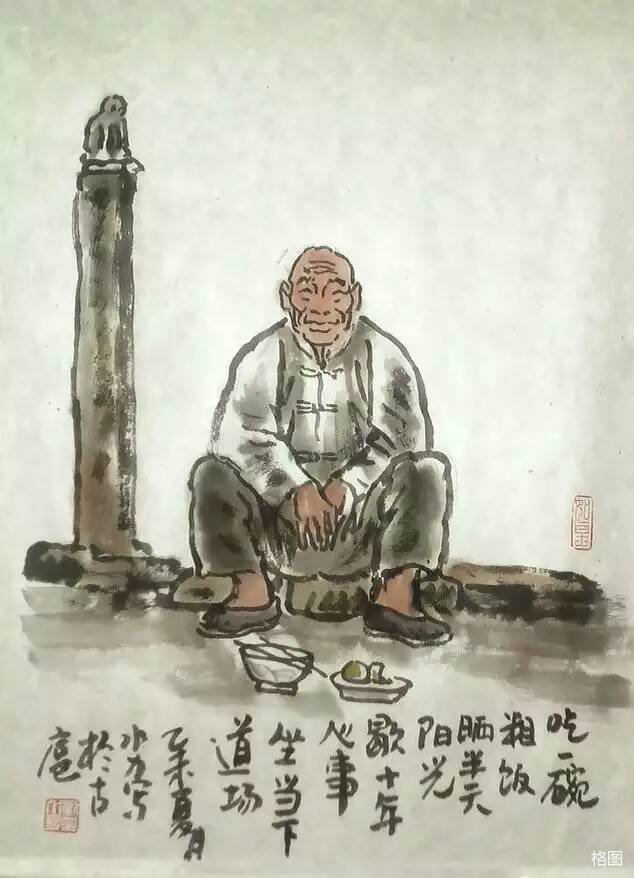 吃一碗
粗饭
晒半天
阳光
歇十年
心事
坐当下
道场
乙未夏月
写
於古
格图